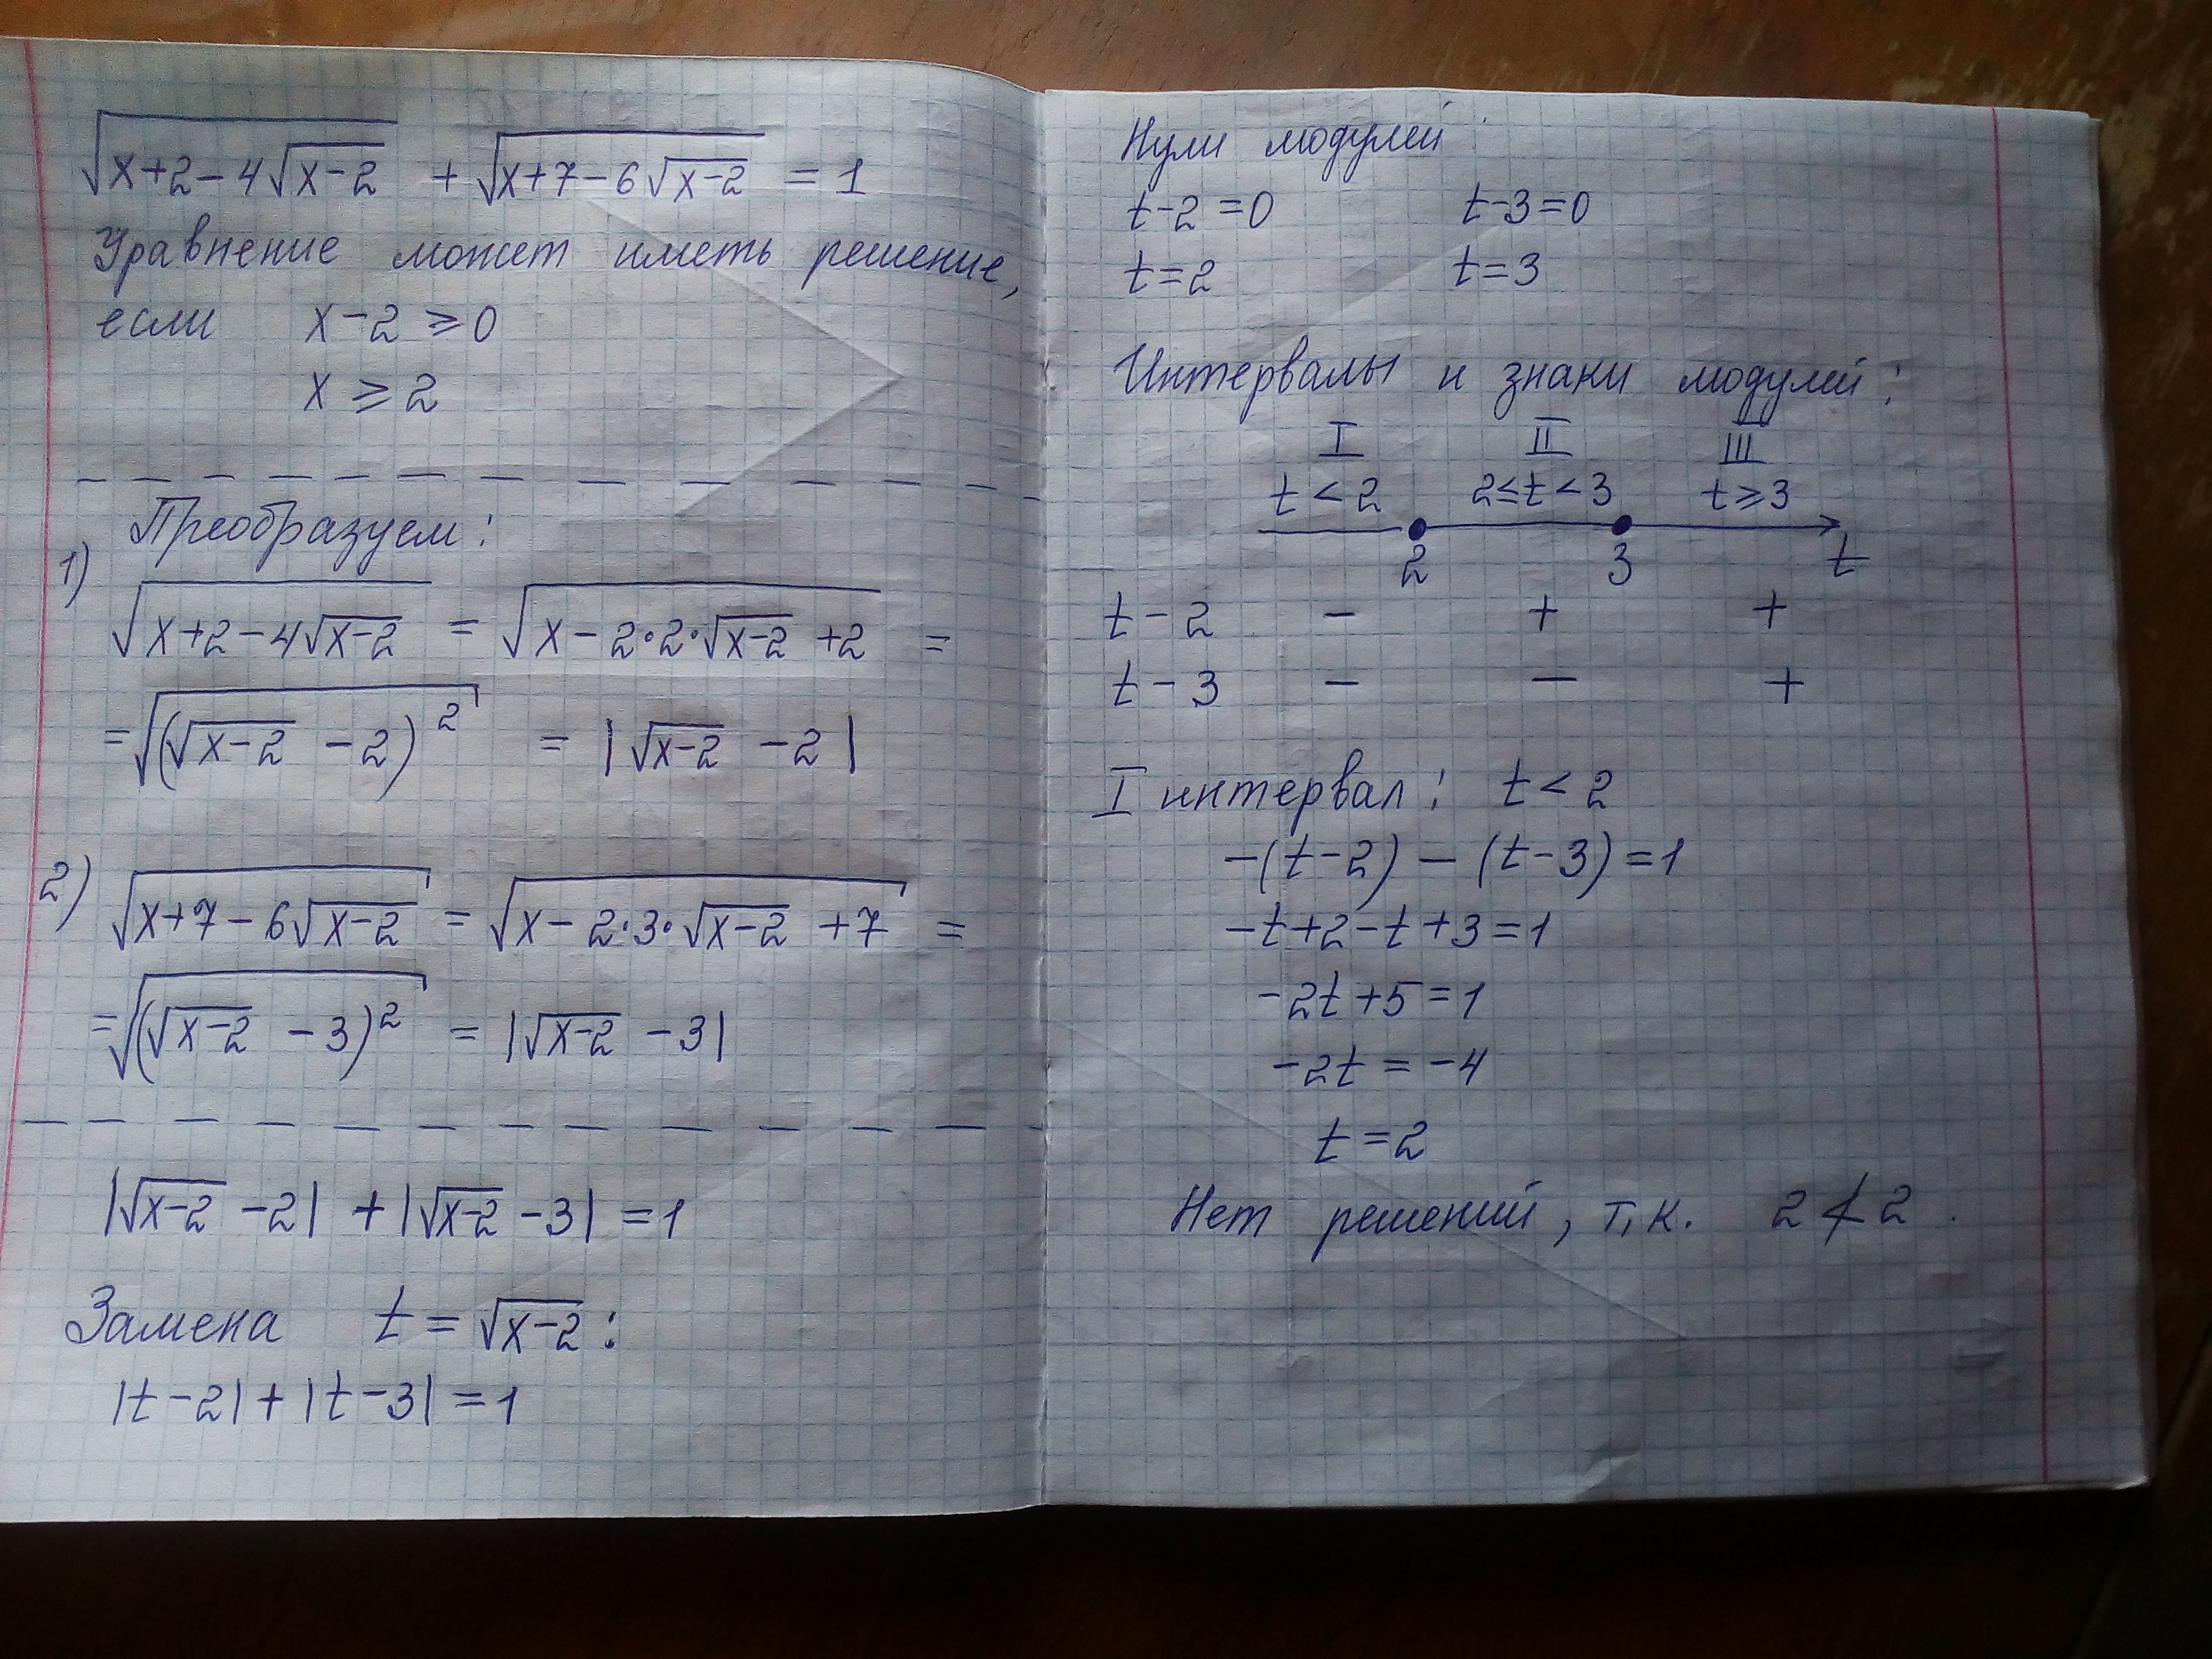 √(x+2-4√(x-2)) + √(x+7-6√(x-2)) = 1
Уравнение может иметь решение,
если x-2 ⩾ 0
x ⩾ 2
Преобразуем:
1)
√(x+2-4√(x-2)) = √(x-2·2·√(x-2) +2) =
= √((√(x-2) -2)²) = |√(x-2) -2|
2) √(x+7-6√(x-2)) = √(x-2·3·√(x-2) +7) =
= √((√(x-2) -3)²) = |√(x-2) -3|
|√(x-2) -2| + |√(x-2) -3| = 1
Замена t = √(x-2) :
|t-2| + |t-3| = 1
Нули модулей:
t-2=0 t-3=0
t=2 t=3
Интервалы и знаки модулей:
I II III
t < 2 2≤t<3 t⩾3
2 3 t
t-2 - + +
t-3 - - +
I интервал: t < 2
-(t-2) - (t-3) = 1
-t+2-t+3=1
-2t+5=1
-2t = -4
t = 2
Нет решений, т.к. 2 ≮ 2.